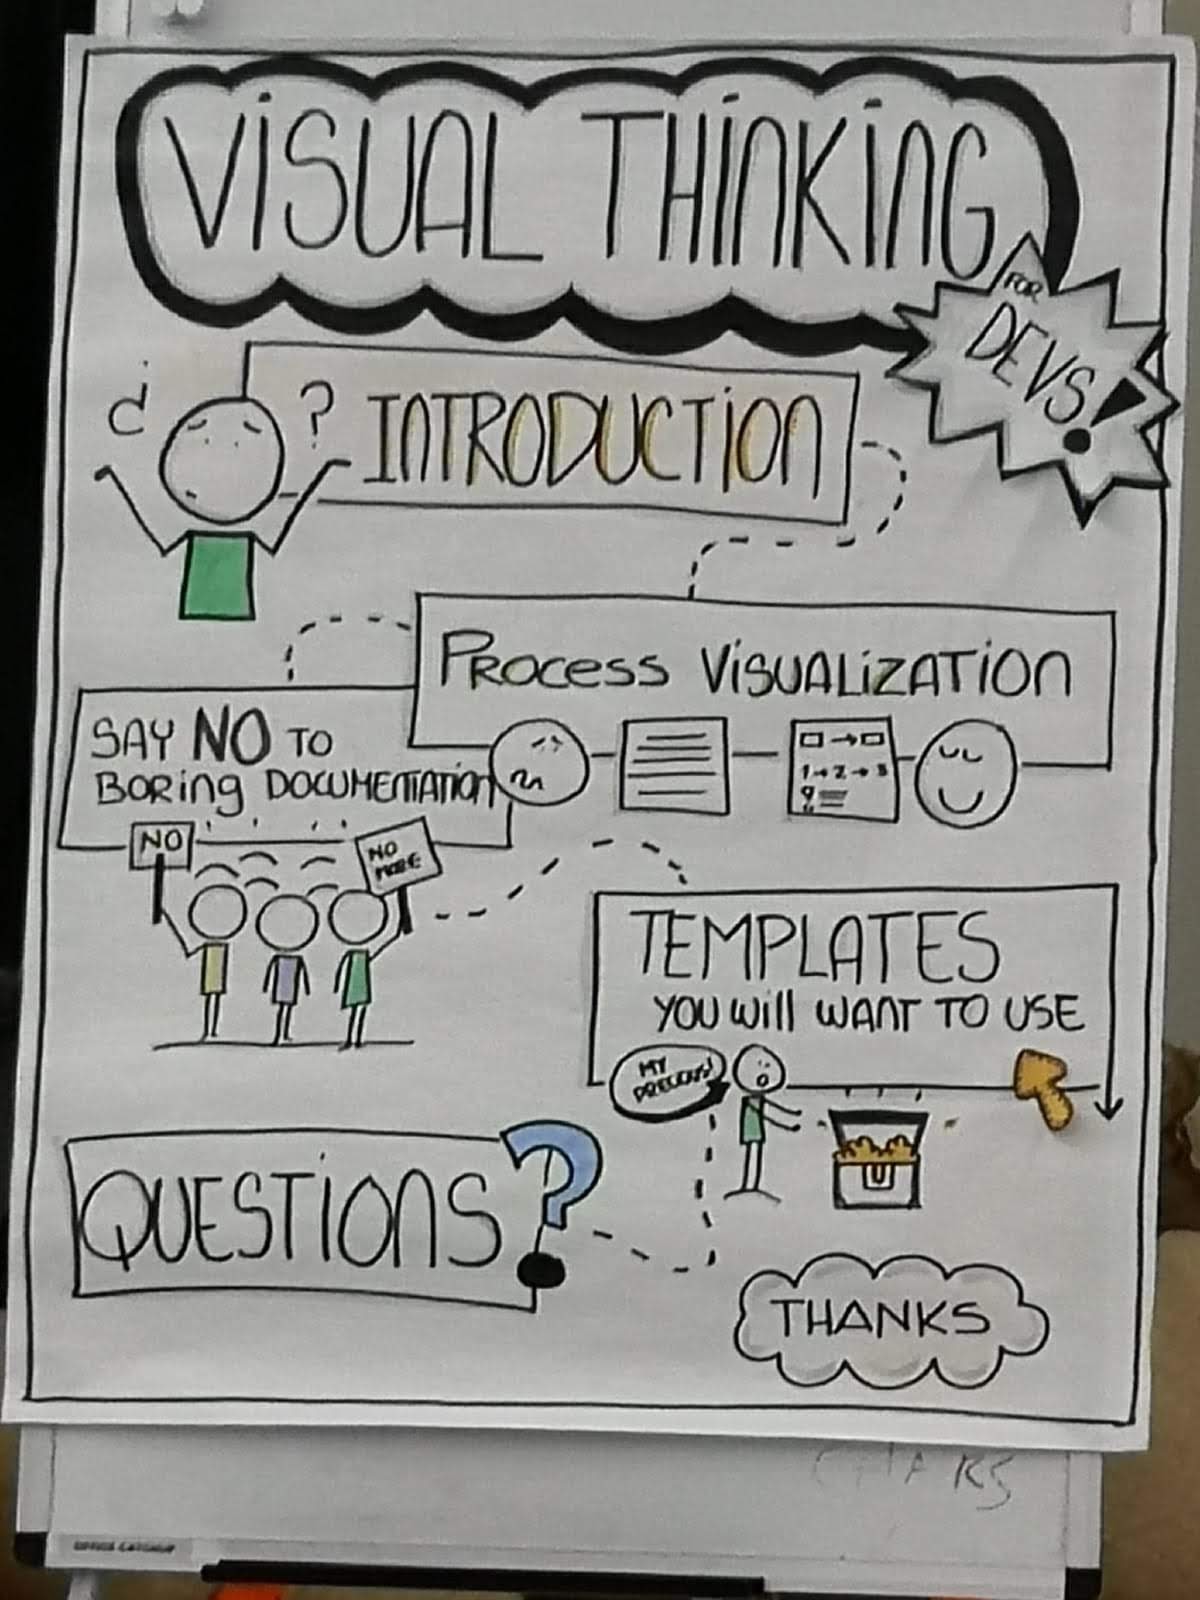 VISUAL THINKING
FOR
DEVS!
¿ ?
INTRODUCTION
PROCESS VISUALIZATION
1→2→3
SAY NO TO
BORING DOCUMENTATION
NO
NO
MORE
TEMPLATES
YOU WILL WANT TO USE
MY
PRECIOUS!
QUESTIONS?
THANKS